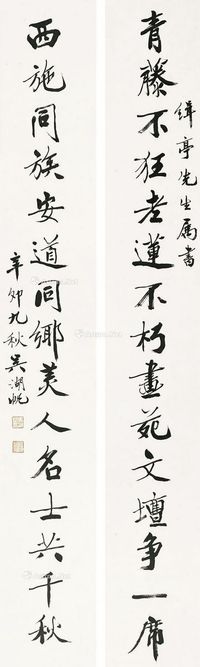 青藤不狂老蓮不朽畫苑文壇争一席
緝亭先生属書
西施同族安道同鄉美人名士共千秋
辛卯九秋吴湖帆